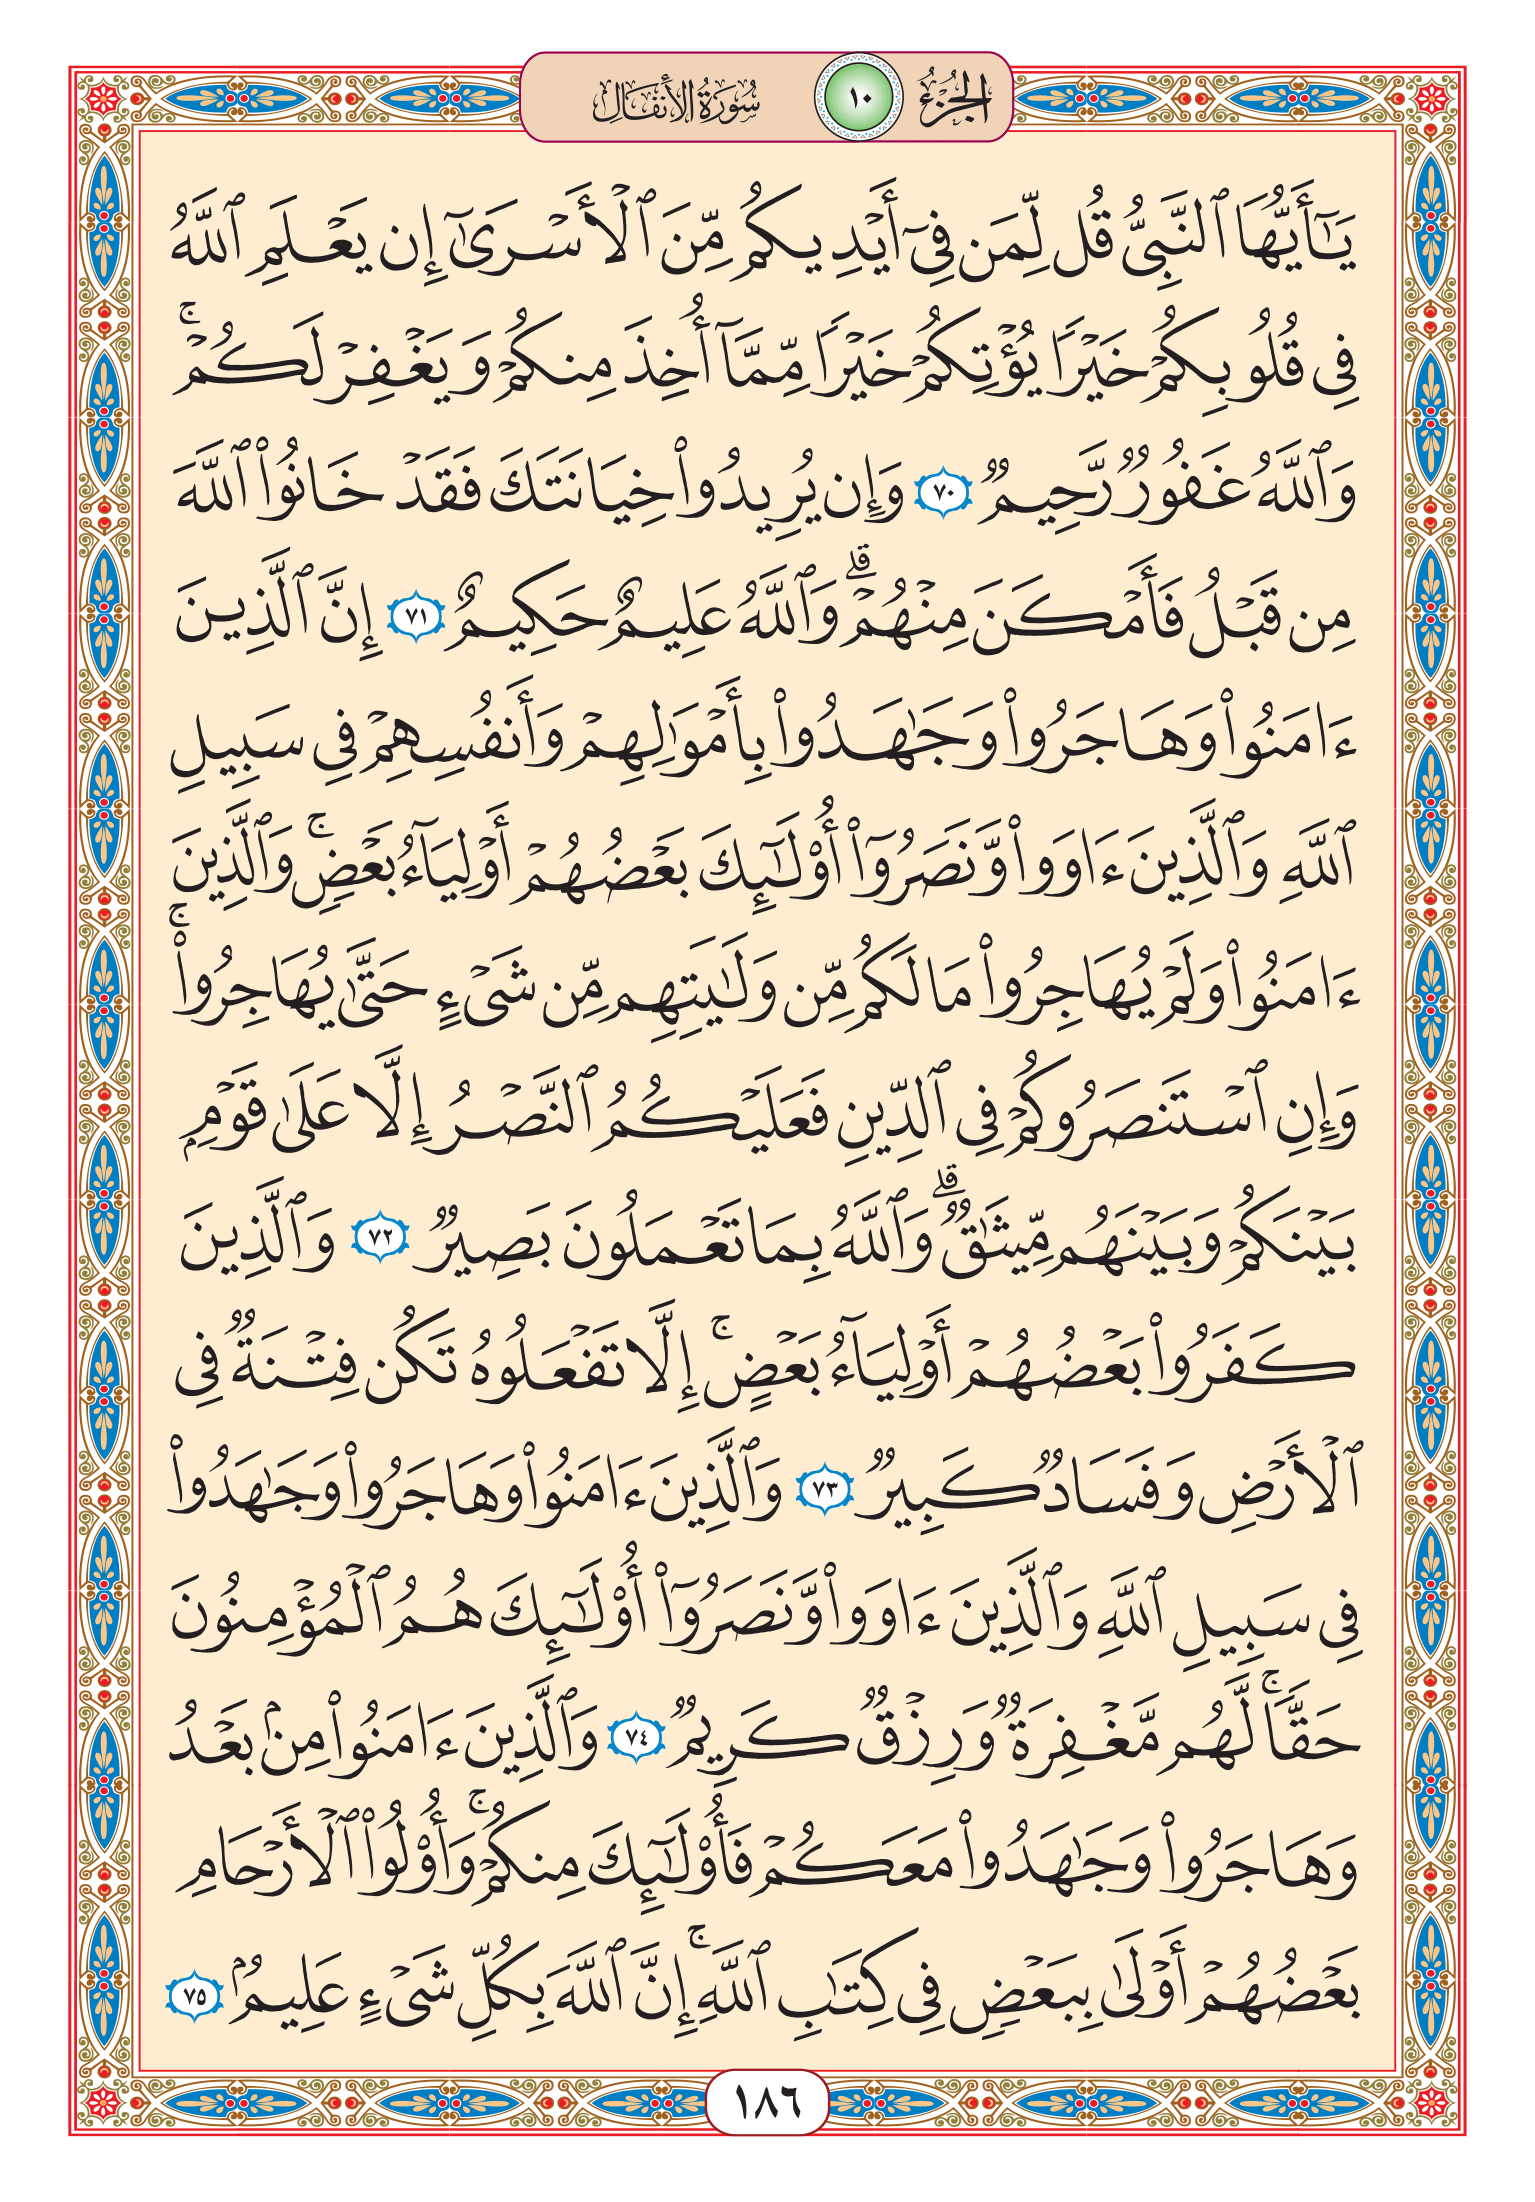 الجزء ١٠ سورة الأنفال
يَٰٓأَيُّهَا ٱلنَّبِيُّ قُل لِّمَن فِيٓ أَيْدِيكُم مِّنَ ٱلْأَسْرَىٰٓ إِن يَعْلَمِ ٱللَّهُ
فِي قُلُوبِكُمْ خَيْرًا يُؤْتِكُمْ خَيْرًا مِّمَّآ أُخِذَ مِنكُمْ وَيَغْفِرْ لَكُمْ ۚ
وَٱللَّهُ غَفُورٌ رَّحِيمٌ ٧٠ وَإِن يُرِيدُوا۟ خِيَانَتَكَ فَقَدْ خَانُوا۟ ٱللَّهَ
مِن قَبْلُ فَأَمْكَنَ مِنْهُمْ ۗ وَٱللَّهُ عَلِيمٌ حَكِيمٌ ٧١ إِنَّ ٱلَّذِينَ
ءَامَنُوا۟ وَهَاجَرُوا۟ وَجَٰهَدُوا۟ بِأَمْوَٰلِهِمْ وَأَنفُسِهِمْ فِي سَبِيلِ
ٱللَّهِ وَٱلَّذِينَ ءَاوَوا۟ وَّنَصَرُوٓا۟ أُو۟لَٰٓئِكَ بَعْضُهُمْ أَوْلِيَآءُ بَعْضٍ ۚ وَٱلَّذِينَ
ءَامَنُوا۟ وَلَمْ يُهَاجِرُوا۟ مَا لَكُم مِّن وَلَٰيَتِهِم مِّن شَيْءٍ حَتَّىٰ يُهَاجِرُوا۟ ۚ
وَإِنِ ٱسْتَنصَرُوكُمْ فِي ٱلدِّينِ فَعَلَيْكُمُ ٱلنَّصْرُ إِلَّا عَلَىٰ قَوْمٍۭ
بَيْنَكُمْ وَبَيْنَهُم مِّيثَٰقٌ ۗ وَٱللَّهُ بِمَا تَعْمَلُونَ بَصِيرٌ ٧٢ وَٱلَّذِينَ
كَفَرُوا۟ بَعْضُهُمْ أَوْلِيَآءُ بَعْضٍ ۚ إِلَّا تَفْعَلُوهُ تَكُن فِتْنَةٌ فِي
ٱلْأَرْضِ وَفَسَادٌ كَبِيرٌ ٧٣ وَٱلَّذِينَ ءَامَنُوا۟ وَهَاجَرُوا۟ وَجَٰهَدُوا۟
فِي سَبِيلِ ٱللَّهِ وَٱلَّذِينَ ءَاوَوا۟ وَّنَصَرُوٓا۟ أُو۟لَٰٓئِكَ هُمُ ٱلْمُؤْمِنُونَ
حَقًّا ۚ لَّهُم مَّغْفِرَةٌ وَرِزْقٌ كَرِيمٌ ٧٤ وَٱلَّذِينَ ءَامَنُوا۟ مِنۢ بَعْدُ
وَهَاجَرُوا۟ وَجَٰهَدُوا۟ مَعَكُمْ فَأُو۟لَٰٓئِكَ مِنكُمْ ۚ وَأُو۟لُوا۟ ٱلْأَرْحَامِ
بَعْضُهُمْ أَوْلَىٰ بِبَعْضٍ فِي كِتَٰبِ ٱللَّهِ ۚ إِنَّ ٱللَّهَ بِكُلِّ شَيْءٍ عَلِيمٌۢ ٧٥
١٨٦